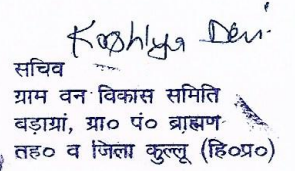 Koshlya Devi
सचिव
ग्राम वन विकास समिति
बड़ाग्रां, ग्रा० पं० ब्राह्मण
तह० व जिला कुल्लू (हि०प्र०)